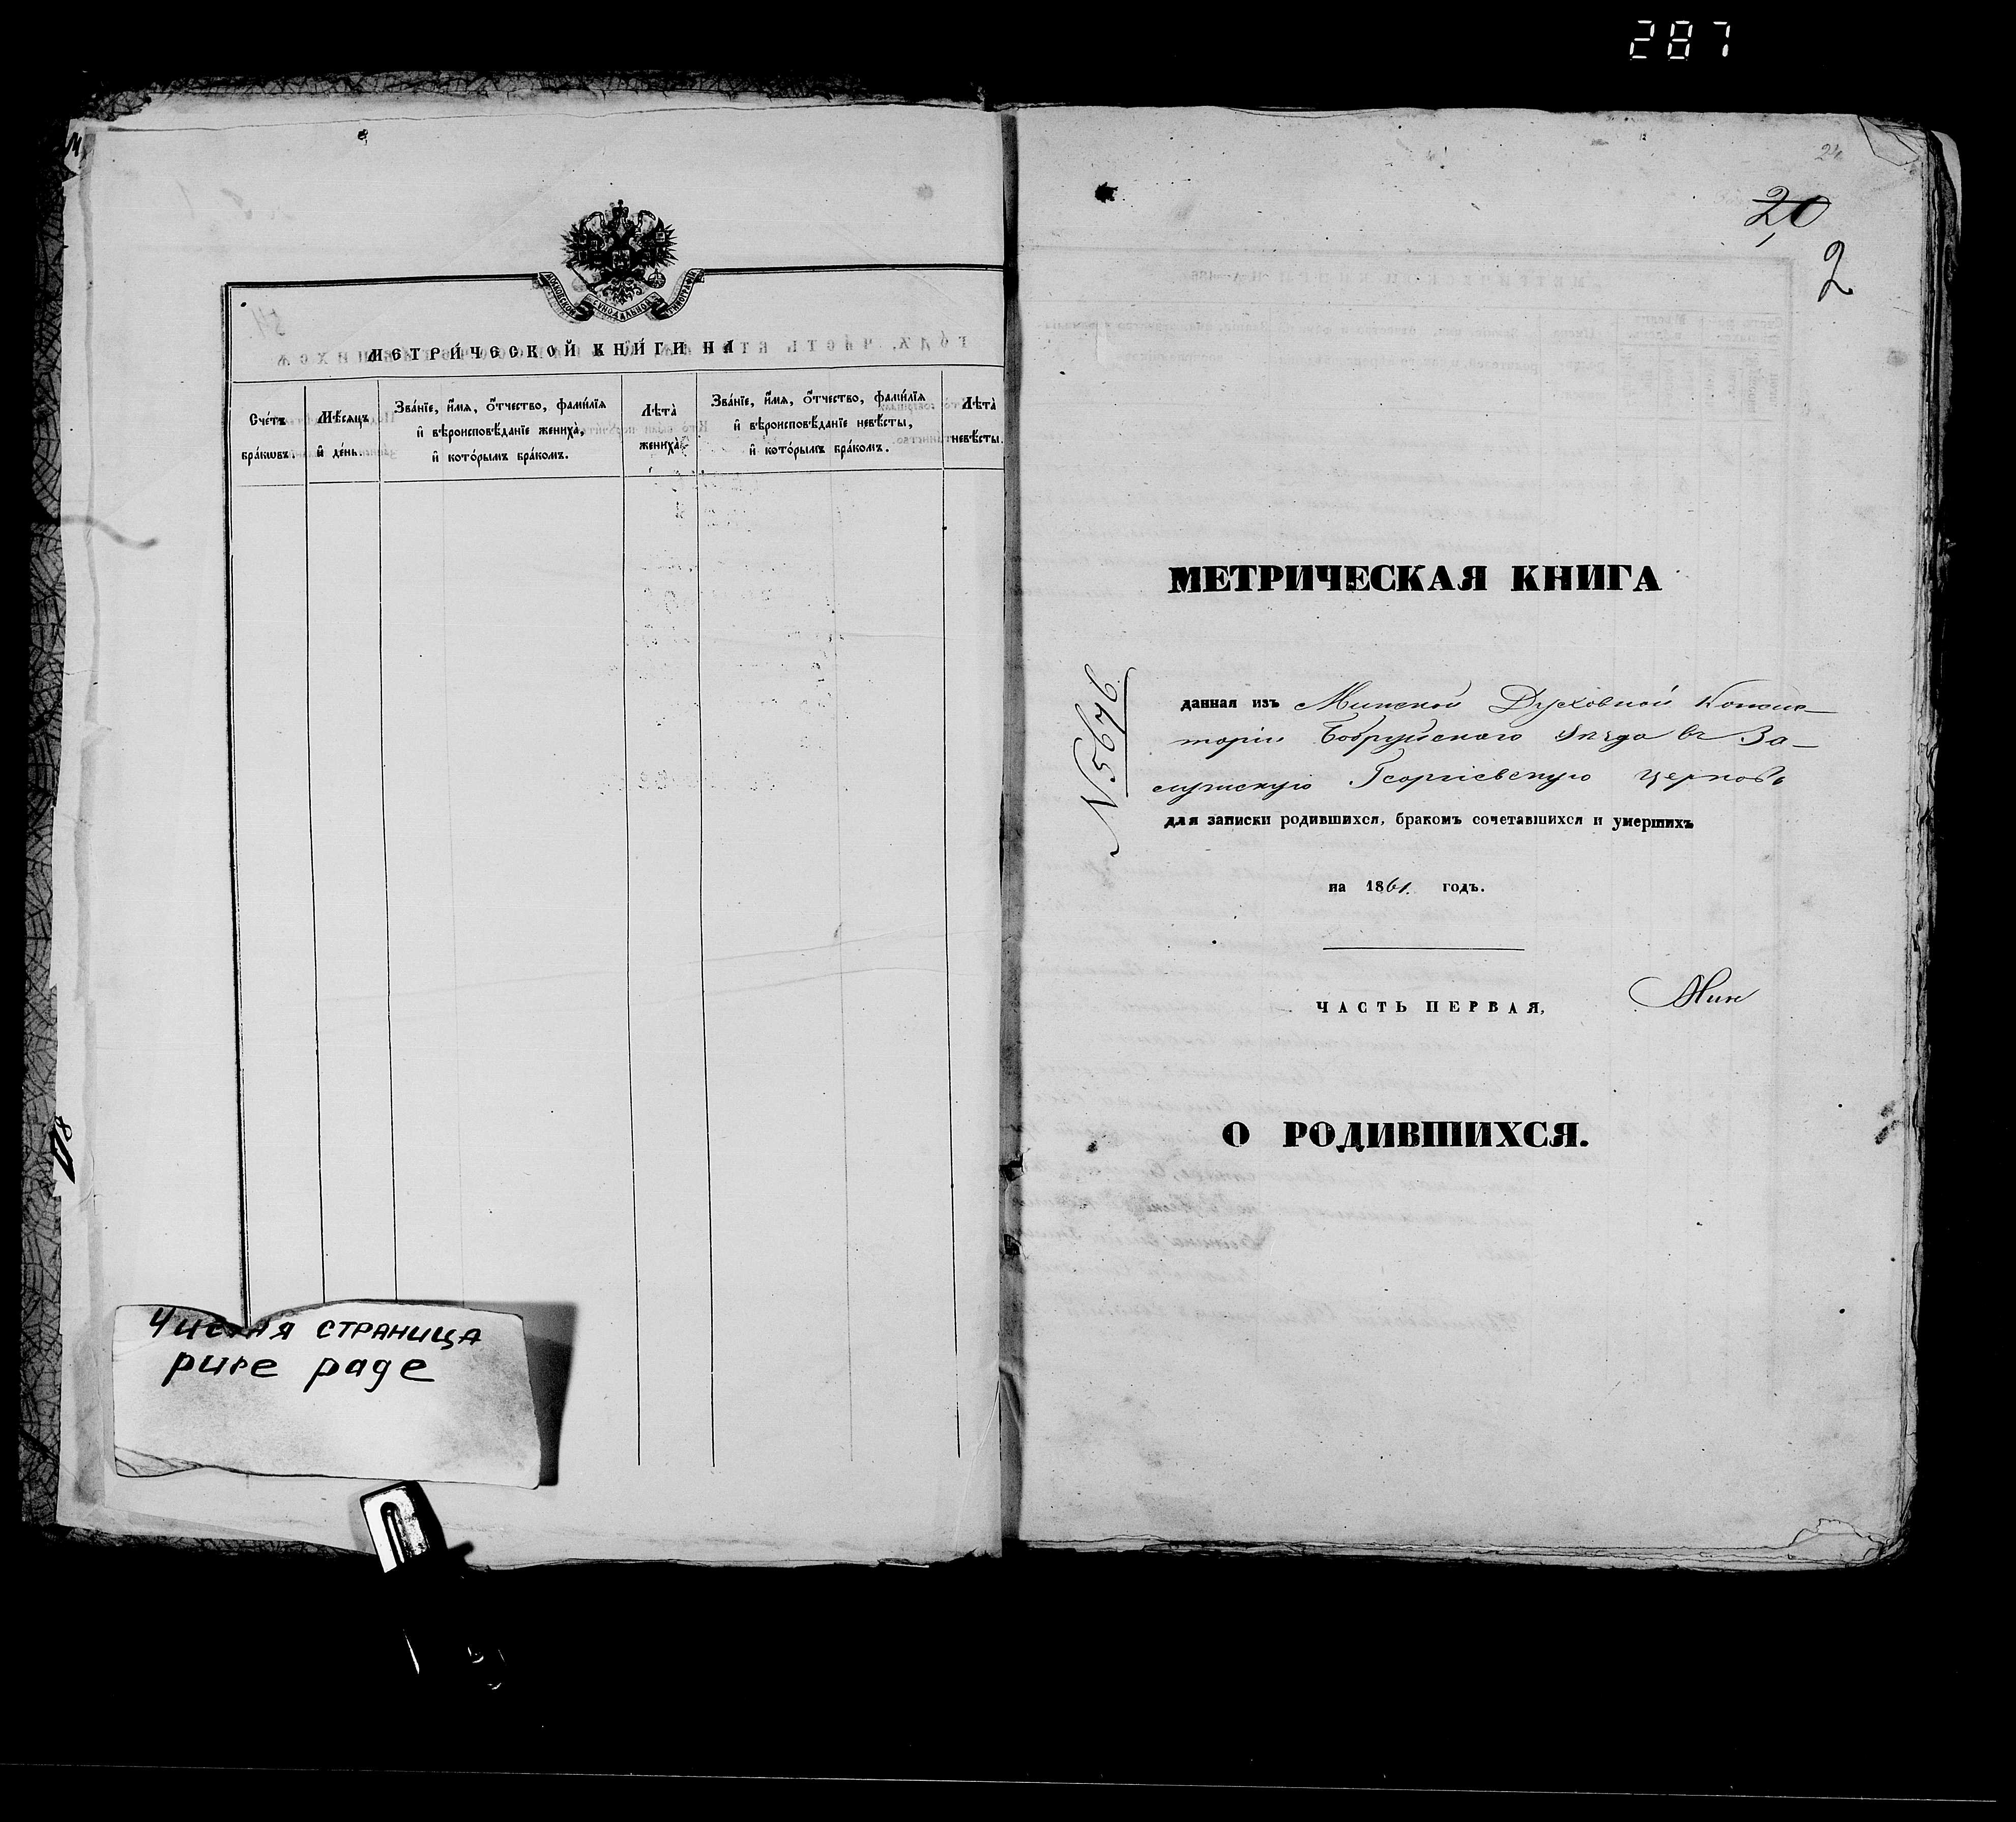 287
МОСКОВСКОЙ СУНОДАЛЬНОЙ ТИПОГРАФІИ
МЕТРИ́ЧЕСКОЙ КНИ́ГИ НА
Сче́тъ бра́кѡвъ.
Мѣ́сяцъ и҆ де́нь.
Зва́нїе, и҆́мя, ѻ҆́тчество, фами́лїя
и҆ вѣроисповѣ́данїе жениха̀,
и҆ кото́рымъ бра́комъ.
Лѣта̀ жениха̀.
Зва́нїе, и҆́мя, ѻ҆́тчество, фами́лїя
и҆ вѣроисповѣ́данїе невѣ́сты,
и҆ кото́рымъ бра́комъ.
Лѣта̀ невѣ́сты.
Чистая страница
pure page
24
20
2
МЕТРИЧЕСКАЯ КНИГА
N 5676
данная изъ Минской Духовной Консис-
торіи Бобруйскаго Уѣзда въ За-
лужскую Георгіевскую церковь
для записки родившихся, бракомъ сочетавшихся и умершихъ
на 1861. годъ.
ЧАСТЬ ПЕРВАЯ,
О РОДИВШИХСЯ.